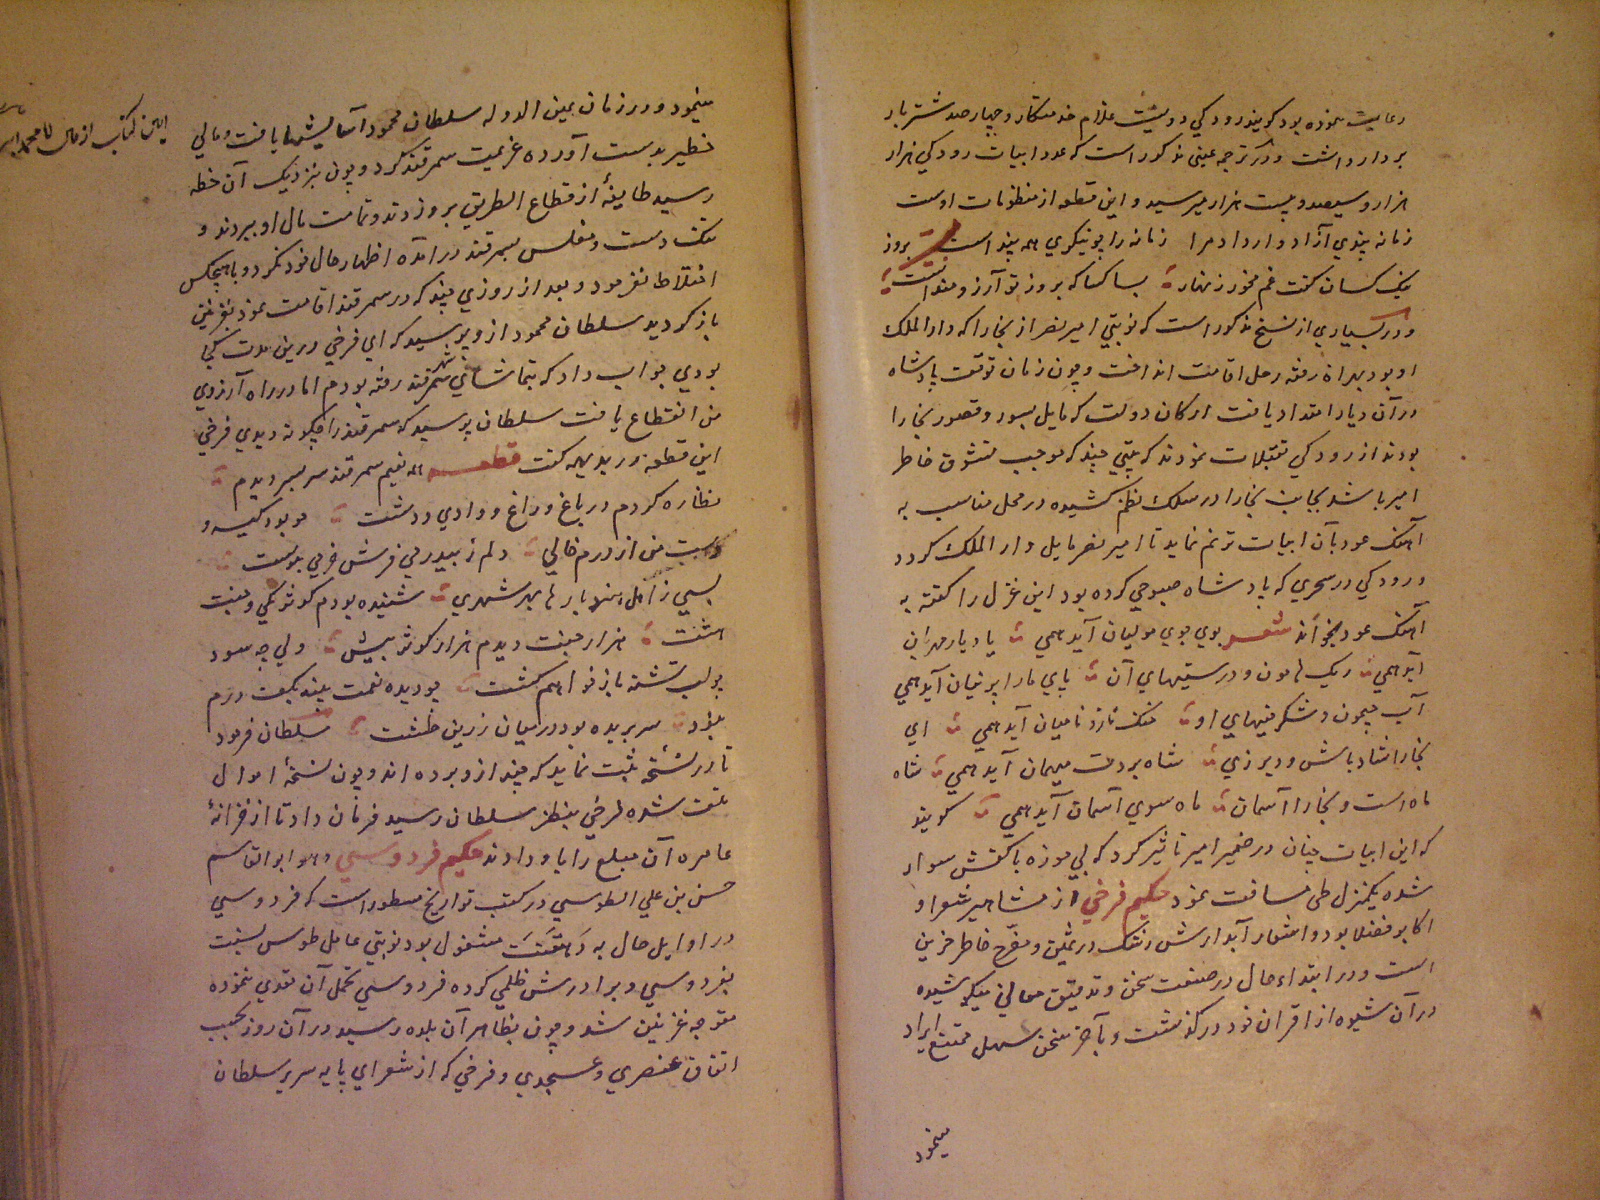 رعایت نموده بود گویند رودکی دویست غلام خدمتکار و چهارصد شتر بار
بردار داشت و در ترجمه عینی مذکور است که عدد ابیات رودکی هزار
هزار و سیصد و بیست هزار میرسید و این قطعه از منظومات اوست
زمانه پندی آزاد وار داد مرا زمانه را چو نیکو بنگری همه پند است بروز
نیک کسان گفت غم مخور زنهار بسا کسا که بروز تو آرزومند است
و در بسیاری از نسخ مذکور است که نوبتی امیر نصر از بخارا که دار الملک
او بود بهراة رفته رحل اقامت انداخت و چون زمان توقف پادشاه
در آن دیار امتداد یافت ارکان دولت که مایل بسور و قصور بخارا
بودند از رودکی تقبلات نمودند که بیتی چند که موجب تشوق خاطر
امیر باشد بجانب بخارا در سلک نظم کشیده در محل مناسب به
آهنگ عود بآن ابیات ترنم نماید تا امیر نصر مایل دار الملک گردد
و رودکی در سحری که پادشاه صبوحی کرده بود این غزل را گفته به
آهنگ عود بخواند شعر بوی جوی مولیان آید همی یاد یار مهربان
آید همی ریک هامون و درستیهای آن پای ما را پرنیان آید همی
آب جیحون و شگرفیهای او خنک ما را تا میان آید همی ای
بخارا شاد باش و دیر زی شاه بردت میهمان آید همی شاه
ماه است و بخارا آسمان ماه سوی آسمان آید همی گویند
که این ابیات چنان در ضمیر امیر تاثیر کرد که بی موزه با کفش سوار
شده یکمنزل طی مسافت نمود حکیم فرخی از مشاهیر شعرا و
اکابر فضلا بود و اشعار آبدارش رشک در ثمین و مفرح خاطر حزین
است و در ابتداء حال در صنعت سخن و تدقیق معانی میکوشیده
در آن شیوه از اقران خود در گذشت و بآخر سخن سهل ممتنع ایراد
مینمود
مینمود و در زمان یمین الدوله سلطان محمود آسایشها یافت و مالی
خطیر بدست آورده عزیمت سمرقند کرد و چون بنزدیک آن خطه
رسید طایفهٔ از قطاع الطریق برو زدند و تمامت مال او ببردند و
تنک دست و مفلس بسمرقند درآمده اظهار حال خود نکرد و با هیچکس
اختلاط نفرمود و بعد از روزی چند که در سمرقند اقامت نمود بغزنین
باز گردید سلطان محمود ازو پرسید که ای فرخی درین مدت کجا
بودی جواب داد که بتماشای شهر سمرقند رفته بودم اما در راه آرزوی
من انقطاع یافت سلطان پرسید که سمرقند را چگونه دیدی فرخی
این قطعه در بدیهه گفت قطعه همه نعیم سمرقند سر بسر دیدم
نظاره کردم در باغ و راغ و وادی و دشت چو بود کیسه و
جیب من از درم خالی دلم ز فرش خرمی بنوشت
بسی ز اهل هنر بارها بهر شهری شنیده بودم کوثر یکی و جنت
هشت هزار جنت دیدم هزار کوثر بیش ولی چه سود
چو لب تشنه باز خواهم گشت چو دیده نعمت بیند بکف درم
نبود سر بریده بود در میان زرین طشت سلطان فرمود
تا در نسخه ثبت نماید که چند ازو برده اند و چون نسخهٔ اموال
تلف شده فرخی بنظر سلطان رسید فرمان داد تا از خزانهٔ
عامره آن مبلغ را باو دادند حکیم فردوسی و هو ابو القاسم
حسن بن علی الطوسی در کتب تواریخ مسطور است که فردوسی
در اوایل حال به دهقنت مشغول بود نوبتی عامل طوس نسبت
بفردوسی و برادرش ظلمی کرده فردوسی تحمل آن تعدی ننموده
متوجه غزنین شد و چون بظاهر آن بلده رسید در آن روز بحسب
اتفاق عنصری و عسجدی و فرخی که از شعرای پایه سریر سلطان
این کتاب از مال